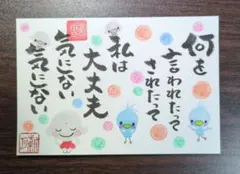 何を
言われたって
されたって
私は
大丈夫
気にしない
気にしない